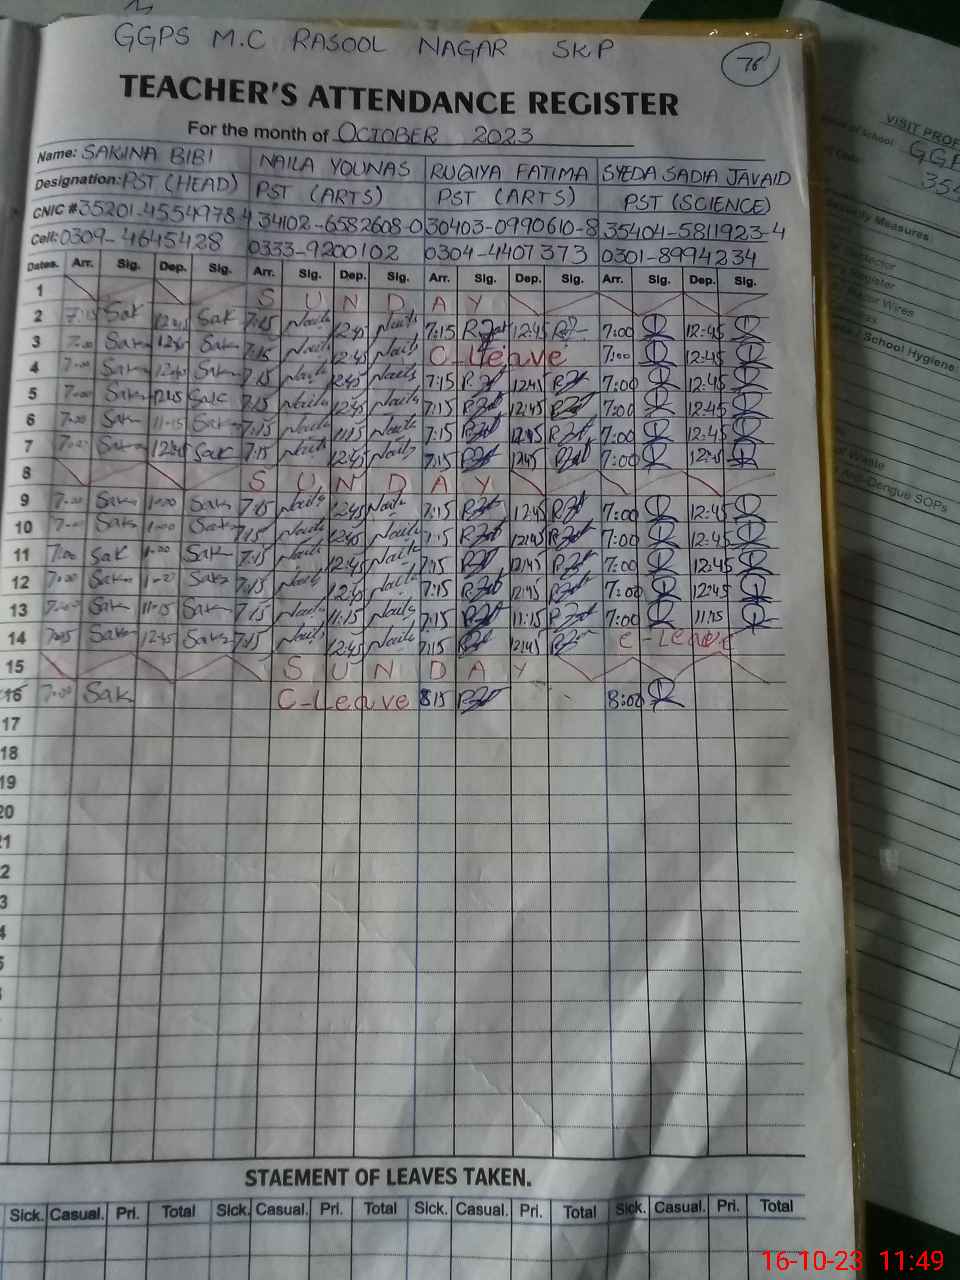 GGPS M.C RASOOL NAGAR SKP
76
TEACHER'S ATTENDANCE REGISTER
For the month of OCTOBER 2023
Name: SAKINA BIBI NAILA YOUNAS RUQIYA FATIMA SYEDA SADIA JAVAID
Designation: PST (HEAD) PST (ARTS) PST (ARTS) PST (SCIENCE)
CNIC # 35201-4554978-4 34102-6582608-0 30403-0990610-8 35404-5811923-4
Cell: 0309-4645428 0333-9200102 0304-4407373 0301-8994234
Dates. Arr. Sig. Dep. Sig. Arr. Sig. Dep. Sig. Arr. Sig. Dep. Sig. Arr. Sig. Dep. Sig.
1 S U N D A Y
2 7:15 Sak 12:45 Sak 7:15 Naila 12:45 Naila 7:15 12:45 7:00 12:45
3 7:00 Sak 12:45 Sak 7:15 Naila 12:45 Naila C-Leave 7:00 12:45
4 7:00 Sak 12:45 Sak 7:15 Naila 12:45 Naila 7:15 12:45 7:00 12:45
5 7:00 Sak 12:45 Sak 7:15 Naila 12:45 Naila 7:15 12:45 7:00 12:45
6 7:00 Sak 11:15 Sak 7:15 Naila 11:15 Naila 7:15 7:00 12:45
7 7:00 Sak 12:45 Sak 7:15 Naila 12:45 Naila 7:15 12:45 7:00 12:45
8 S U N D A Y
9 7:00 Sak 1:00 Sak 7:15 Naila 12:45 Naila 7:15 12:45 7:00 12:45
10 7:00 Sak 1:00 Sak 7:15 Naila 12:45 Naila 7:15 12:45 7:00 12:45
11 7:00 Sak 1:00 Sak 7:15 Naila 12:45 Naila 7:15 12:45 7:00 12:45
12 7:00 Sak 1:00 Sak 7:15 Naila 12:45 Naila 7:15 12:45 7:00 12:45
13 7:00 Sak 11:15 Sak 7:15 Naila 11:15 Naila 7:15 11:15 7:00 11:15
14 7:15 Sak 12:45 Sak 7:15 Naila 12:45 Naila 7:15 12:45 C-Leave
15 S U N D A Y
16 7:00 Sak C-Leave 8:15 8:00
17
18
19
20
21
2
3
4
5
STAEMENT OF LEAVES TAKEN.
Sick. Casual. Pri. Total Sick. Casual. Pri. Total Sick. Casual. Pri. Total Sick. Casual. Pri. Total
VISIT PROF
of school GGP
354
Security Measures:
Detector
Register
Razor Wires
School Hygiene
of Waste
Anti-Dengue SOPs
16-10-23 11:49